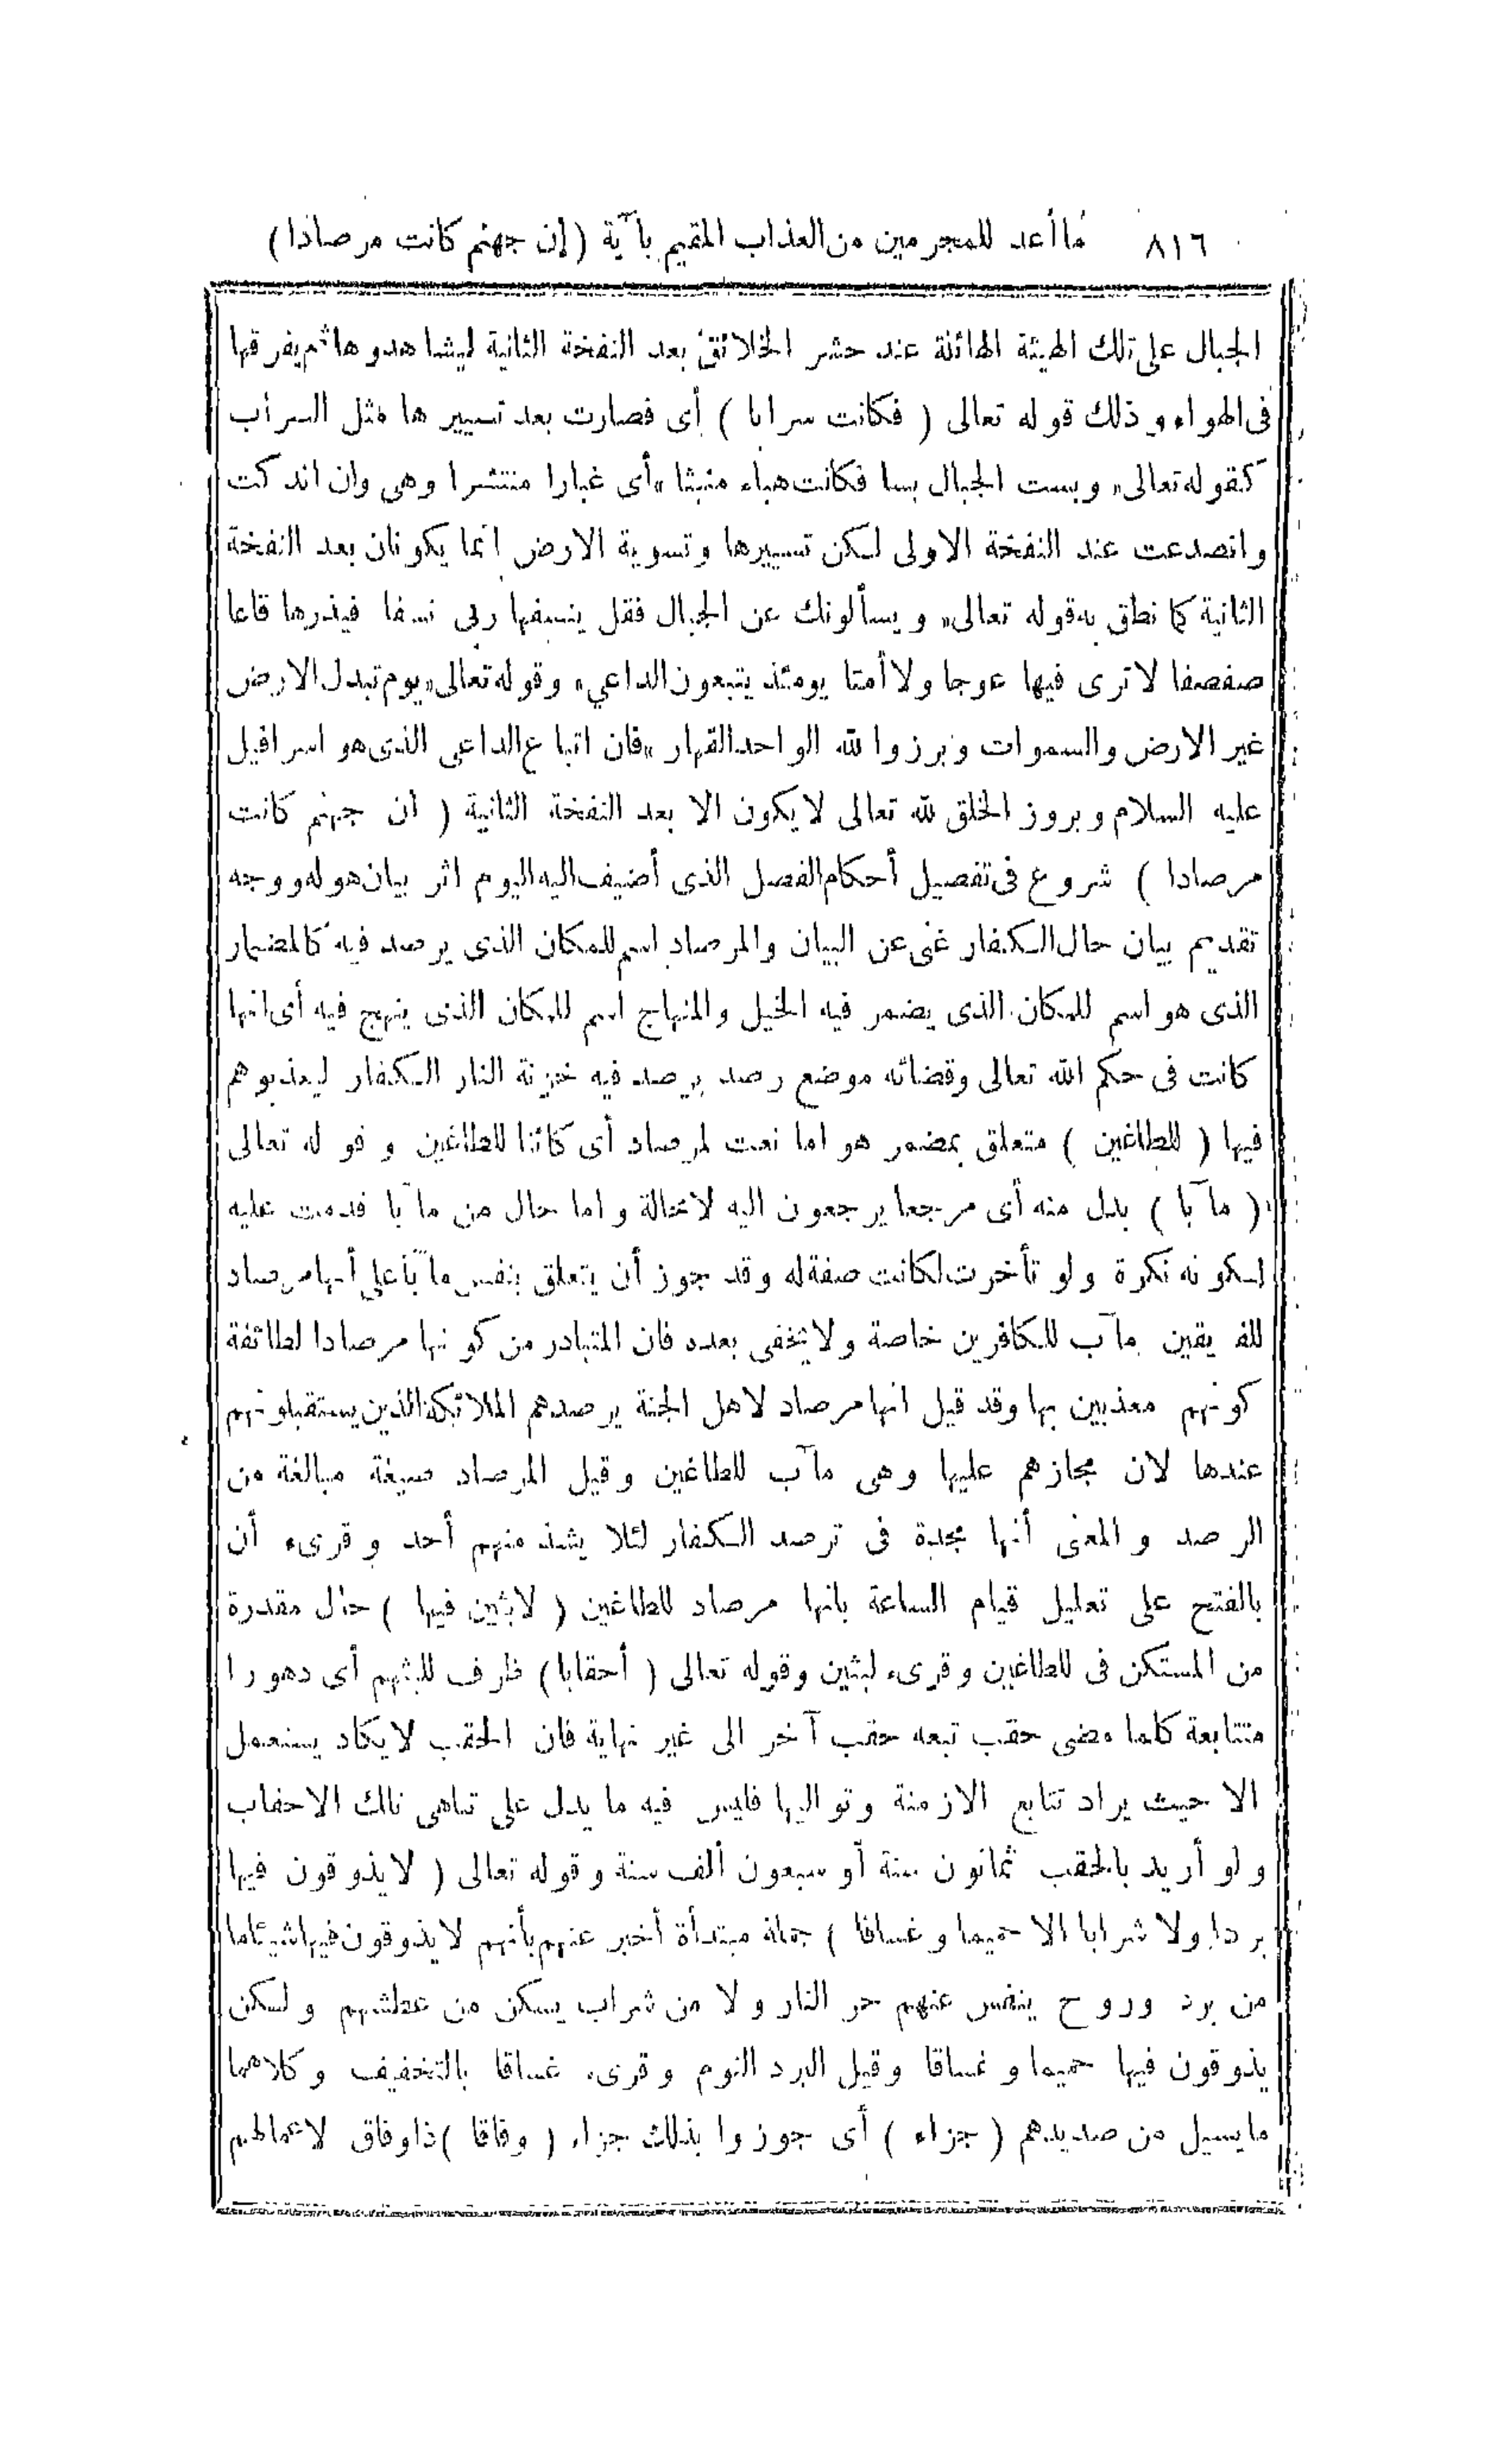 ٨١٦ ما أعد للمجرمين من العذاب المقيم بآية (إن جهنم كانت مرصادا)
الجبال على تلك الهيئة الهائلة عند حشر الخلائق بعد النفخة الثانية ليشاهدوها ثم يفرقها
فى الهواء وذلك قوله تعالى ( فكانت سرابا ) أى فصارت بعد تسييرها مثل السراب
كقوله تعالى «وبست الجبال بسا فكانت هباء منبثا» أى غبارا منتشرا وهى وان اندكت
وانصدعت عند النفخة الاولى لكن تسييرها وتسوية الارض انما يكونان بعد النفخة
الثانية كما نطق به قوله تعالى «ويسألونك عن الجبال فقل ينسفها ربى نسفا فيذرها قاعا
صفصفا لا ترى فيها عوجا ولا أمتا يومئذ يتبعون الداعي» وقوله تعالى «يوم تبدل الارض
غير الارض والسموات وبرزوا لله الواحد القهار» فان اتباع الداعى الذى هو اسرافيل
عليه السلام وبروز الخلق لله تعالى لا يكون الا بعد النفخة الثانية ( ان جهنم كانت
مرصادا ) شروع فى تفصيل أحكام الفصل الذى أضيف اليه اليوم اثر بيان هوله ووجه
تقديم بيان حال الكفار غنى عن البيان والمرصاد اسم للمكان الذى يرصد فيه كالمضمار
الذى هو اسم للمكان الذى يضمر فيه الخيل والمنهاج اسم للمكان الذى ينهج فيه أى انها
كانت فى حكم الله تعالى وقضائه موضع رصد يرصد فيه خزنة النار الكفار ليعذبوهم
فيها ( للطاغين ) متعلق بمضمر هو اما نعت لمرصاد أى كائنا للطاغين وقوله تعالى
( مآبا ) بدل منه أى مرجعا يرجعون اليه لا محالة واما حال من مآبا قدمت عليه
لكونه نكرة ولو تأخرت لكانت صفة له وقد جوز أن يتعلق بنفس مآبا على أنها مرصاد
للفريقين مآب للكافرين خاصة ولا يخفى بعده فان المتبادر من كونها مرصادا لطائفة
كونهم معذبين بها وقد قيل انها مرصاد لاهل الجنة يرصدهم الملائكة الذين يستقبلونهم
عندها لان مجازهم عليها وهى مآب للطاغين وقيل المرصاد صيغة مبالغة من
الرصد والمعنى أنها مجدة فى ترصد الكفار لئلا يشذ منهم أحد وقرىء أن
بالفتح على تعليل قيام الساعة بانها مرصاد للطاغين ( لابثين فيها ) حال مقدرة
من المستكن فى للطاغين وقرىء لبثين وقوله تعالى ( أحقابا ) ظرف للبثهم أى دهورا
متتابعة كلما مضى حقب تبعه حقب آخر الى غير نهاية فان الحقب لا يكاد يستعمل
الا حيث يراد تتابع الازمنة وتواليها فليس فيه ما يدل على تناهى تلك الاحقاب
ولو أريد بالحقب ثمانون سنة أو سبعون ألف سنة وقوله تعالى ( لا يذوقون فيها
بردا ولا شرابا الا حميما وغساقا ) جملة مبتدأة أخبر عنهم بأنهم لا يذوقون فيها شيئا ما
من برد وروح ينفس عنهم حر النار ولا من شراب يسكن من عطشهم ولكن
يذوقون فيها حميما وغساقا وقيل البرد النوم وقرىء غساقا بالتخفيف وكلاهما
ما يسيل من صديدهم ( جزاء ) أى جوزوا بذلك جزاء ( وفاقا ) ذا وفاق لاعمالهم